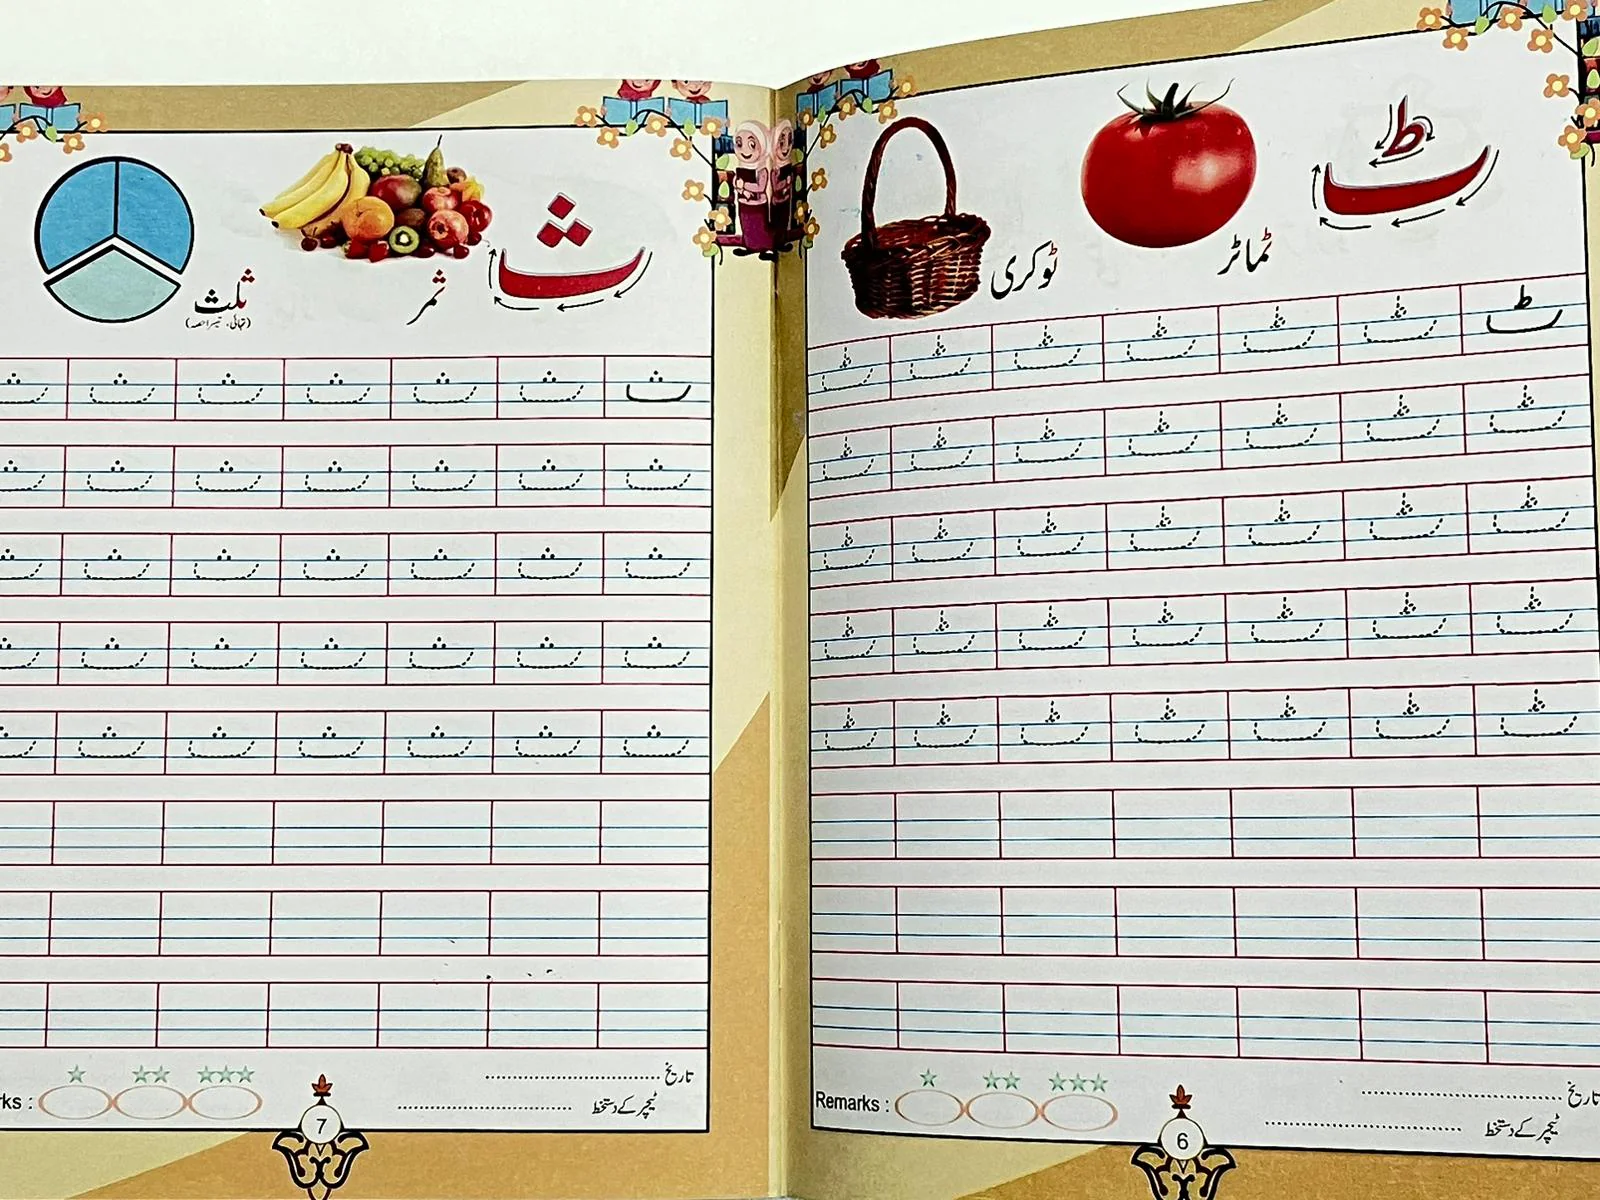 ٹ
ٹماٹر
ٹوکری
ٹ ٹ ٹ ٹ ٹ ٹ ٹ
ٹ ٹ ٹ ٹ ٹ ٹ ٹ
ٹ ٹ ٹ ٹ ٹ ٹ ٹ
ٹ ٹ ٹ ٹ ٹ ٹ ٹ
ٹ ٹ ٹ ٹ ٹ ٹ ٹ
تاریخ
ٹیچر کے دستخط
Remarks :
6
ث
ثمر
ثلث
(تہائی، تیسرا حصہ)
ث ث ث ث ث ث ث
ث ث ث ث ث ث ث
ث ث ث ث ث ث ث
ث ث ث ث ث ث ث
ث ث ث ث ث ث ث
تاریخ
ٹیچر کے دستخط
rks :
7